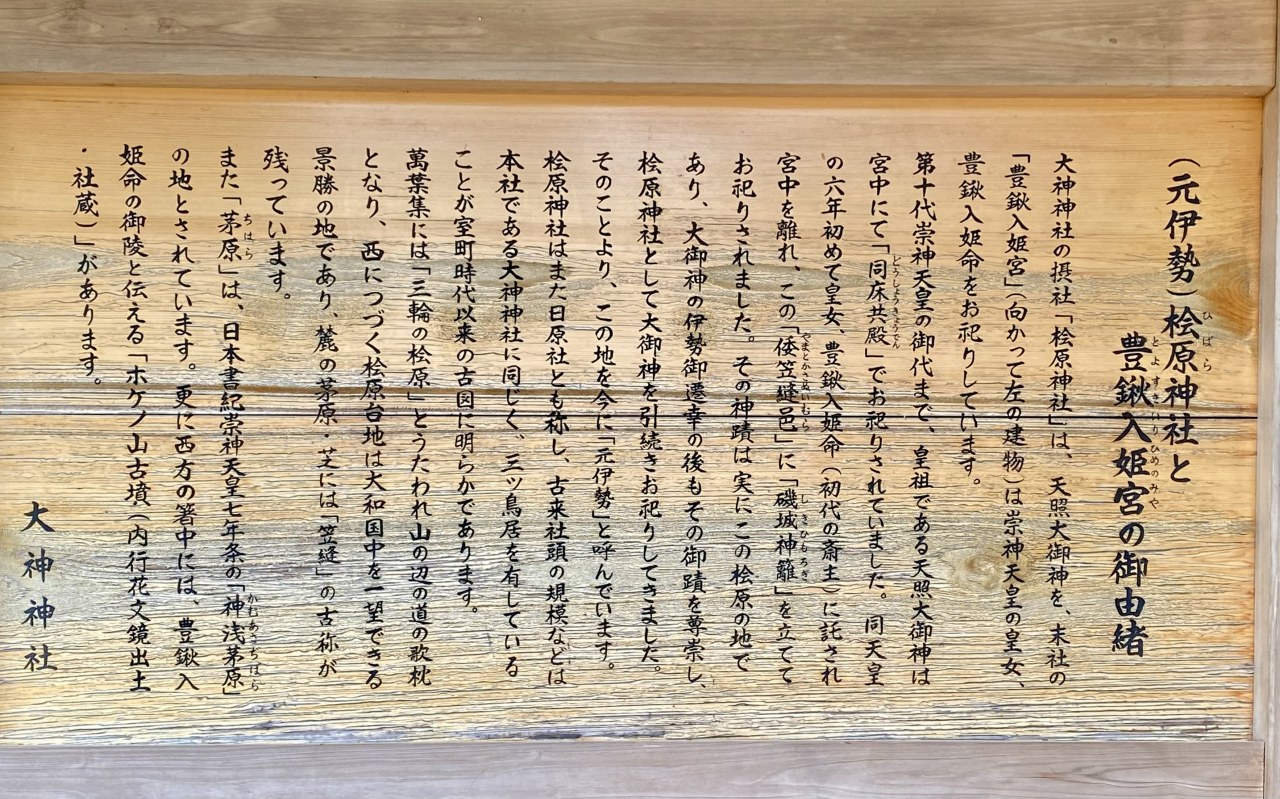 （元伊勢）桧原神社と
豊鍬入姫宮の御由緒
大神神社の摂社「桧原神社」は、天照大御神を、末社の
「豊鍬入姫宮」（向かって左の建物）は崇神天皇の皇女、
豊鍬入姫命をお祀りしています。
第十代崇神天皇の御代まで、皇祖である天照大御神は
宮中にて「同床共殿」でお祀りされていました。同天皇
の六年初めて皇女、豊鍬入姫命（初代の斎主）に託され
宮中を離れ、この「倭笠縫邑」に「磯城神籬」を立てて
お祀りされました。その神蹟は実にこの桧原の地で
あり、大御神の伊勢御遷幸の後もその御蹟を尊崇し、
桧原神社として大御神を引続きお祀りしてきました。
そのことより、この地を今に「元伊勢」と呼んでいます。
桧原神社はまた日原社とも称し、古来社頭の規模などは
本社である大神神社に同じく、三ツ鳥居を有している
ことが室町時代以来の古図に明らかであります。
萬葉集には「三輪の桧原」とうたわれ山の辺の道の歌枕
となり、西につづく桧原台地は大和国中を一望できる
景勝の地であり、麓の茅原・芝には「笠縫」の古称が
残っています。
また「茅原」は、日本書紀崇神天皇七年条の「神浅茅原」
の地とされています。更に西方の箸中には、豊鍬入
姫命の御陵と伝える「ホケノ山古墳（内行花文鏡出土
・社蔵）」があります。
大神神社